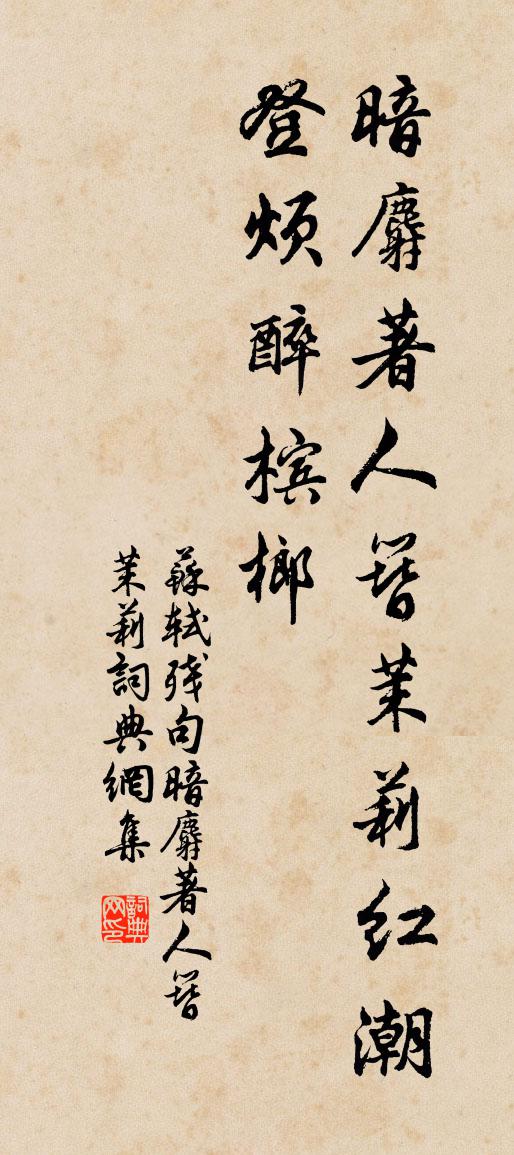 暗麝著人簪茉莉红潮
登颊醉槟榔
蘇軾残句暗麝著人簪
茉莉詞典網集
詞典
网印